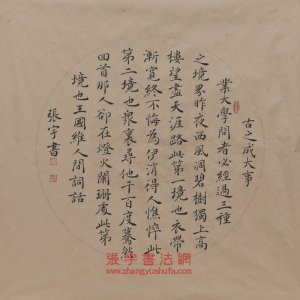 古之成大事
業大學問者必經過三種
之境界昨夜西風凋碧樹獨上高
樓望盡天涯路此第一境也衣帶
漸寬終不悔為伊消得人憔悴此
第二境也衆裏尋他千百度驀然
回首那人卻在燈火闌珊處此第
境也王國維人間詞話
張宇書
張宇書法網
www.zhangyushufa.com